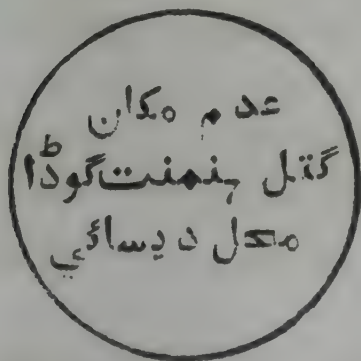 عدم مکان
گتل ہنمنت گوڈا
محل دیسائي